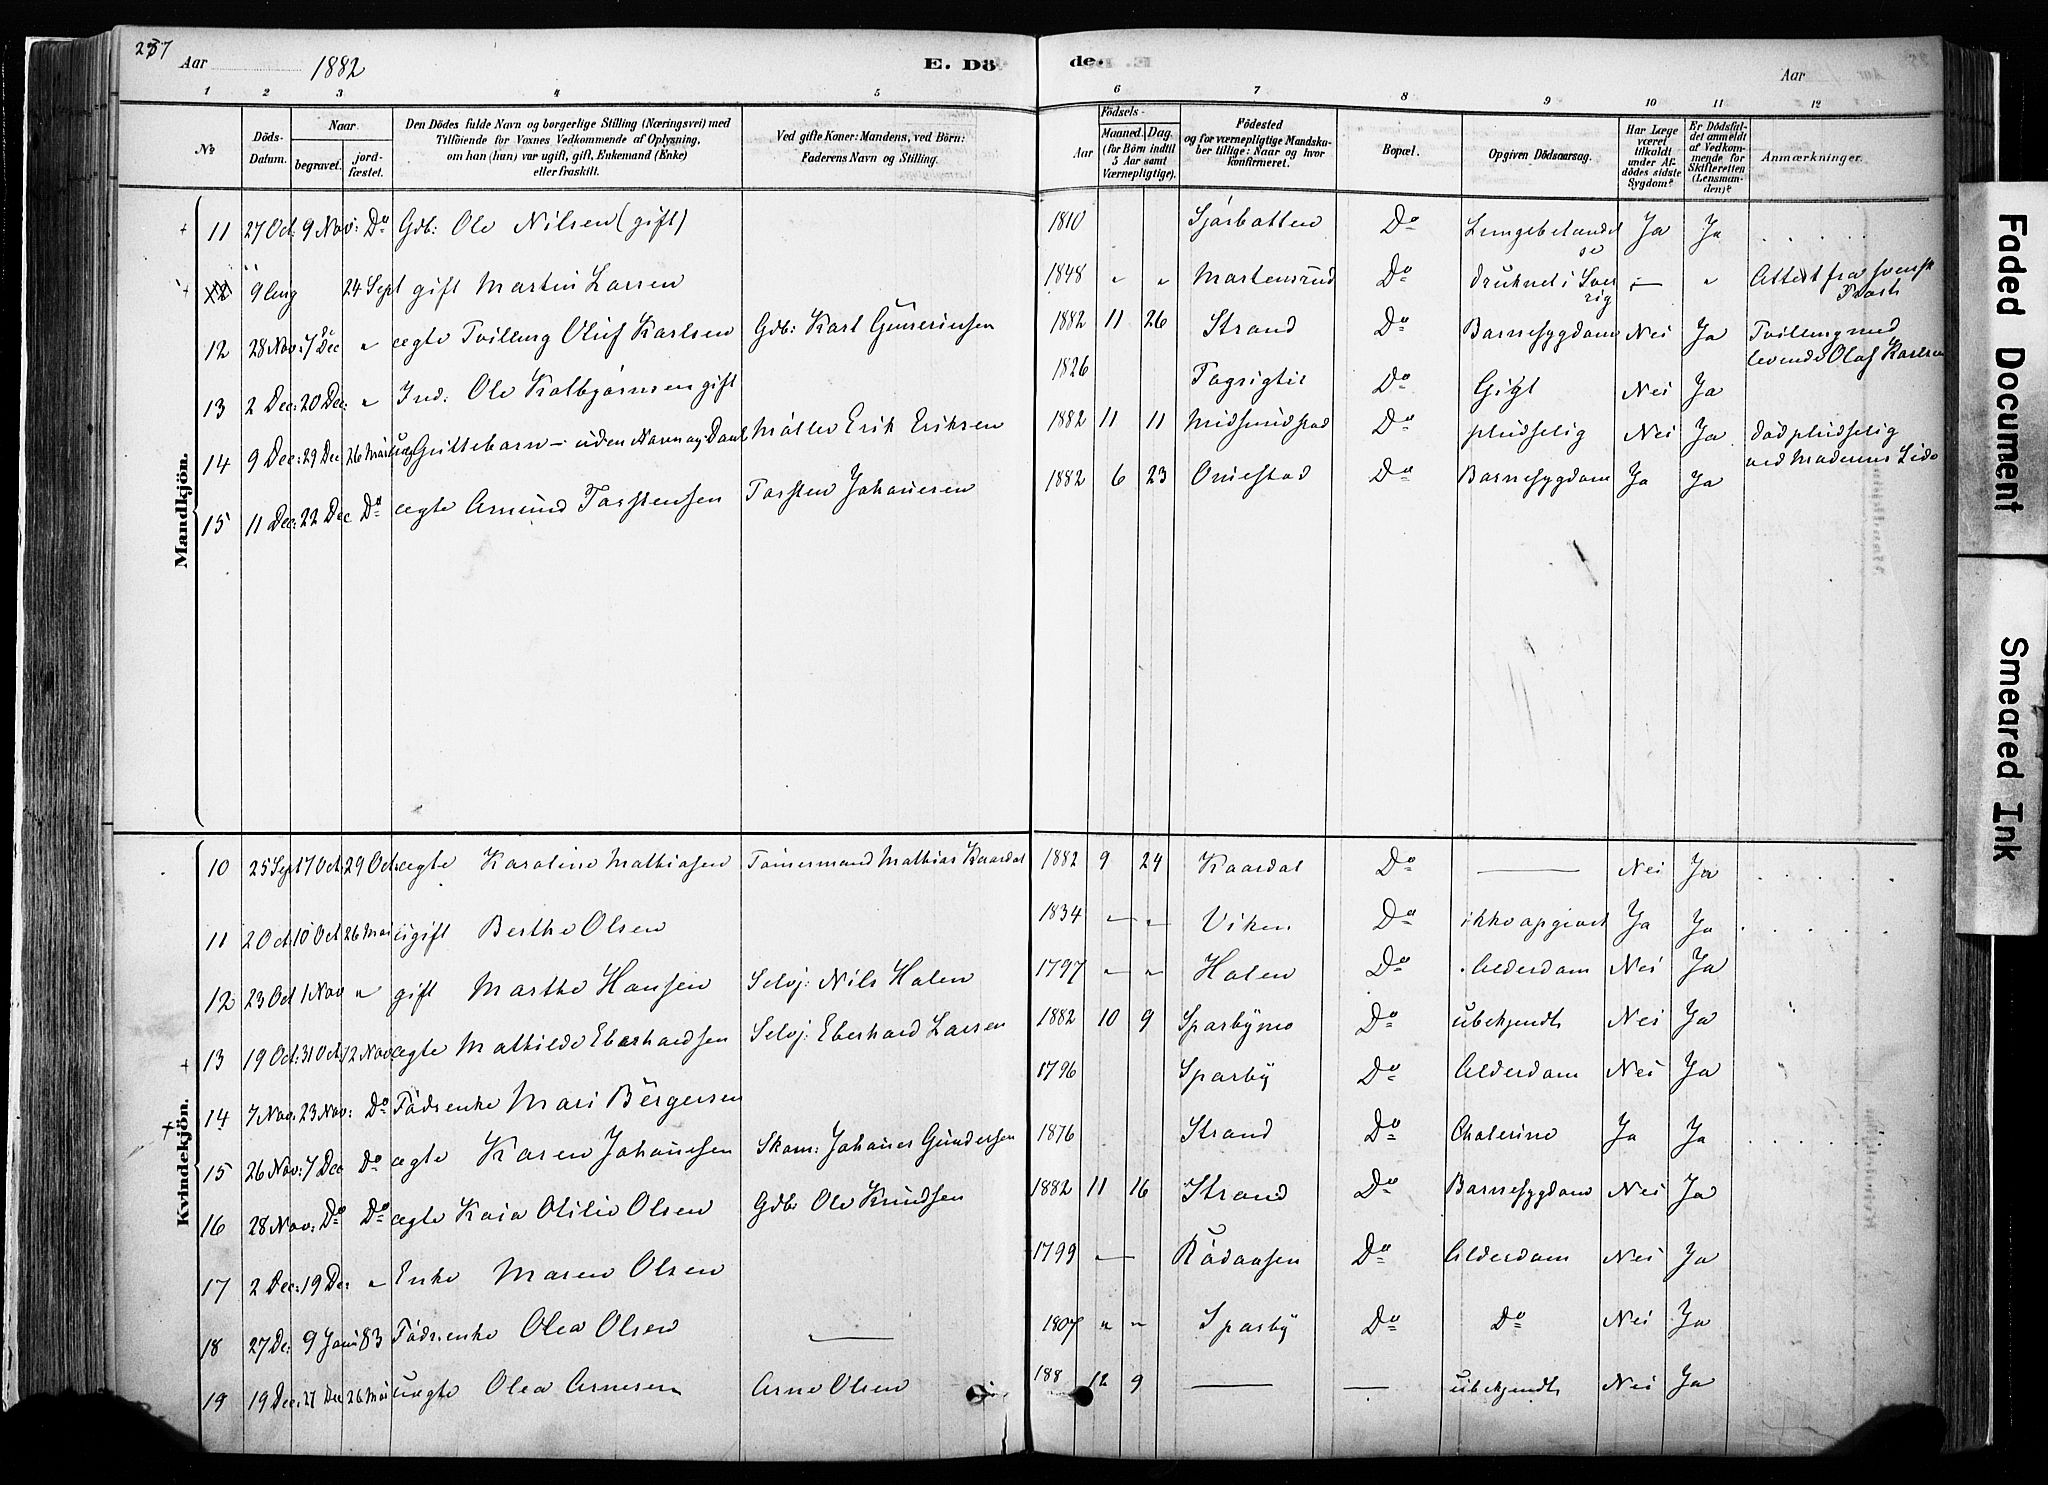 237
Aar 1882
E. Dö
de.
Aar
1 2 3 4 5 6 7 8 9 10 11 12
No
Döds-Datum.
Naar
begravet.
jord-fæstet.
Den Dödes fulde Navn og borgerlige Stilling (Næringsvei) med
Tilföiende for Voxnes Vedkommende af Oplysning,
om han (hun) var ugift, gift, Enkemand (Enke)
eller fraskilt.
Ved gifte Koner: Mandens, ved Börn:
Faderens Navn og Stilling.
Födsels-
Aar
Maaned. Dag.
(for Börn indtil
5 Aar samt
Værnepligtige).
Födested
og for værnepligtige Mandska-
ber tillige: Naar og hvor
konfirmeret.
Bopæl.
Opgiven Dödsaarsag.
Har Læge
været
tilkaldt
under Af-
dödes sidste
Sygdom?
Er Dödsfal-
det anmeldt
af Vedkom-
mende for
Skifteretten
(Lensman-
den)?
Anmærkninger.
Mandkjön.
11 27 Oct: 9 Nov: Do Gdb: Ole Nilsen (gift) 1810 Do Lungebetændelse Ja Ja
9 Aug 24 Sept gift Martin Larsen 1848 " " Martensrud Do druknet i Sverig — " Attest fra svensk Præst
12 28 Nov: 7 De " ægte Tvilling Oluf Karlsen Gdb: Karl Gunerinsen 1882 11 26 Strand Do Barnesygdom Nei Ja Tvilling med
levende Olaf Karlsen
13 2 Dec: 20 Dec: " Ind: Ole Kolbjørnsen gift 1826 Do Gigt Nei Ja
14 9 Dec: 29 Dec 26 Mai uæg Guttebarn – uden Navn og Daab Møller Erik Eriksen 1882 11 11 Do pludselig Nei Ja død pludselig
ved Moderens Side
15 11 Dec: 22 Dec Do ægte Amund Torstensen Torsten Johannesen 1882 6 23 Onsestad Do Barnesygdom Ja Ja
Kvindekjön.
10 25 Sept 7 Oct: 29 Oct ægte Karoline Mathiasen Tømermand Mathias Kaardal 1882 9 24 Kaardal Do — Nei Ja
11 2 Oct 10 Oct 26 Mai ugift Berthe Olsen 1834 — " Viken Do ikke opgivet Ja Ja
12 23 Oct 1 Nov " gift Marthe Hansen Selvj: Nils Holen 1797 " " Holen Do Alderdom Nei Ja
13 19 Oct: 31 Oct 12 Nov: ægte Mathilde Eberhardsen Selvj: Eberhard Larsen 1882 10 9 Sparbymo Do ubekjendt Nei Ja
14 7 Nov: 23 Nov: Do Fødr.enke Mari Børgersen 1796 Sparby Do Alderdom Nei Ja
15 26 Nov: 7 Dec Do ægte Karen Johannesen Skom: Johannes Gundersen 1876 Strand Do Cholerine Ja Ja
16 28 Nov: Do Do ægte Kaia Otilie Olsen Gdb: Ole Knudsen 1882 11 16 Strand Do Barnesygdom Nei Ja
17 2 Dec: 19 De: " Enke Maren Olsen 1799 — Rødaasen Do Alderdom Nei Ja
18 27 De: 9 Jan: 83 Fødr.enke Olea Olsen — 1807 " " Sparby Do Do Nei Ja
19 19 Dec: 27 Dec 26 Mai uægte Olea Arnesen Arne Olsen 188 12 9 — — ubekjendt Nei Ja
Faded Document
Smeared Ink